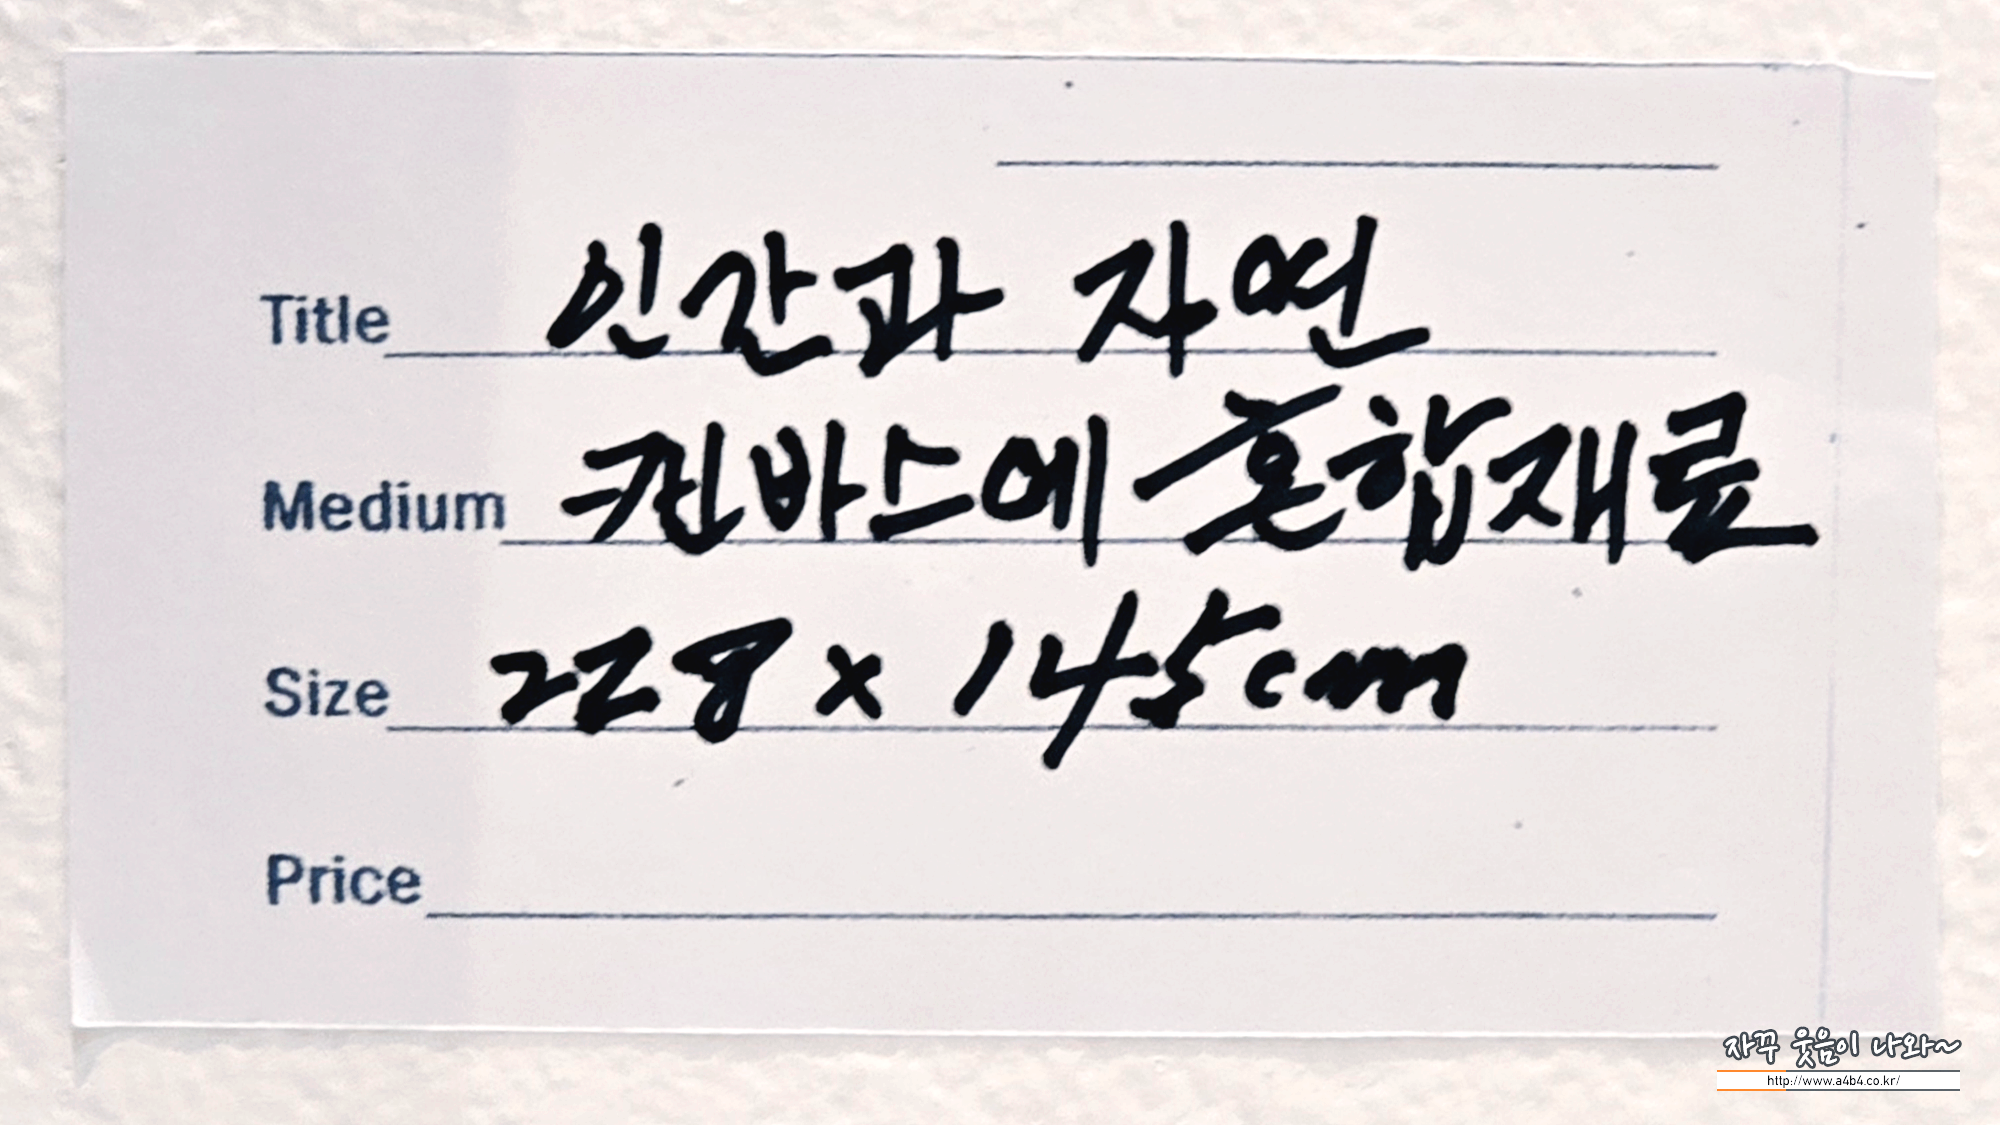 Title 인간과 자연
Medium 컨바스에 혼합재료
Size 228 x 145cm
Price
자꾸 웃음이 나와~
http://www.a4b4.co.kr/